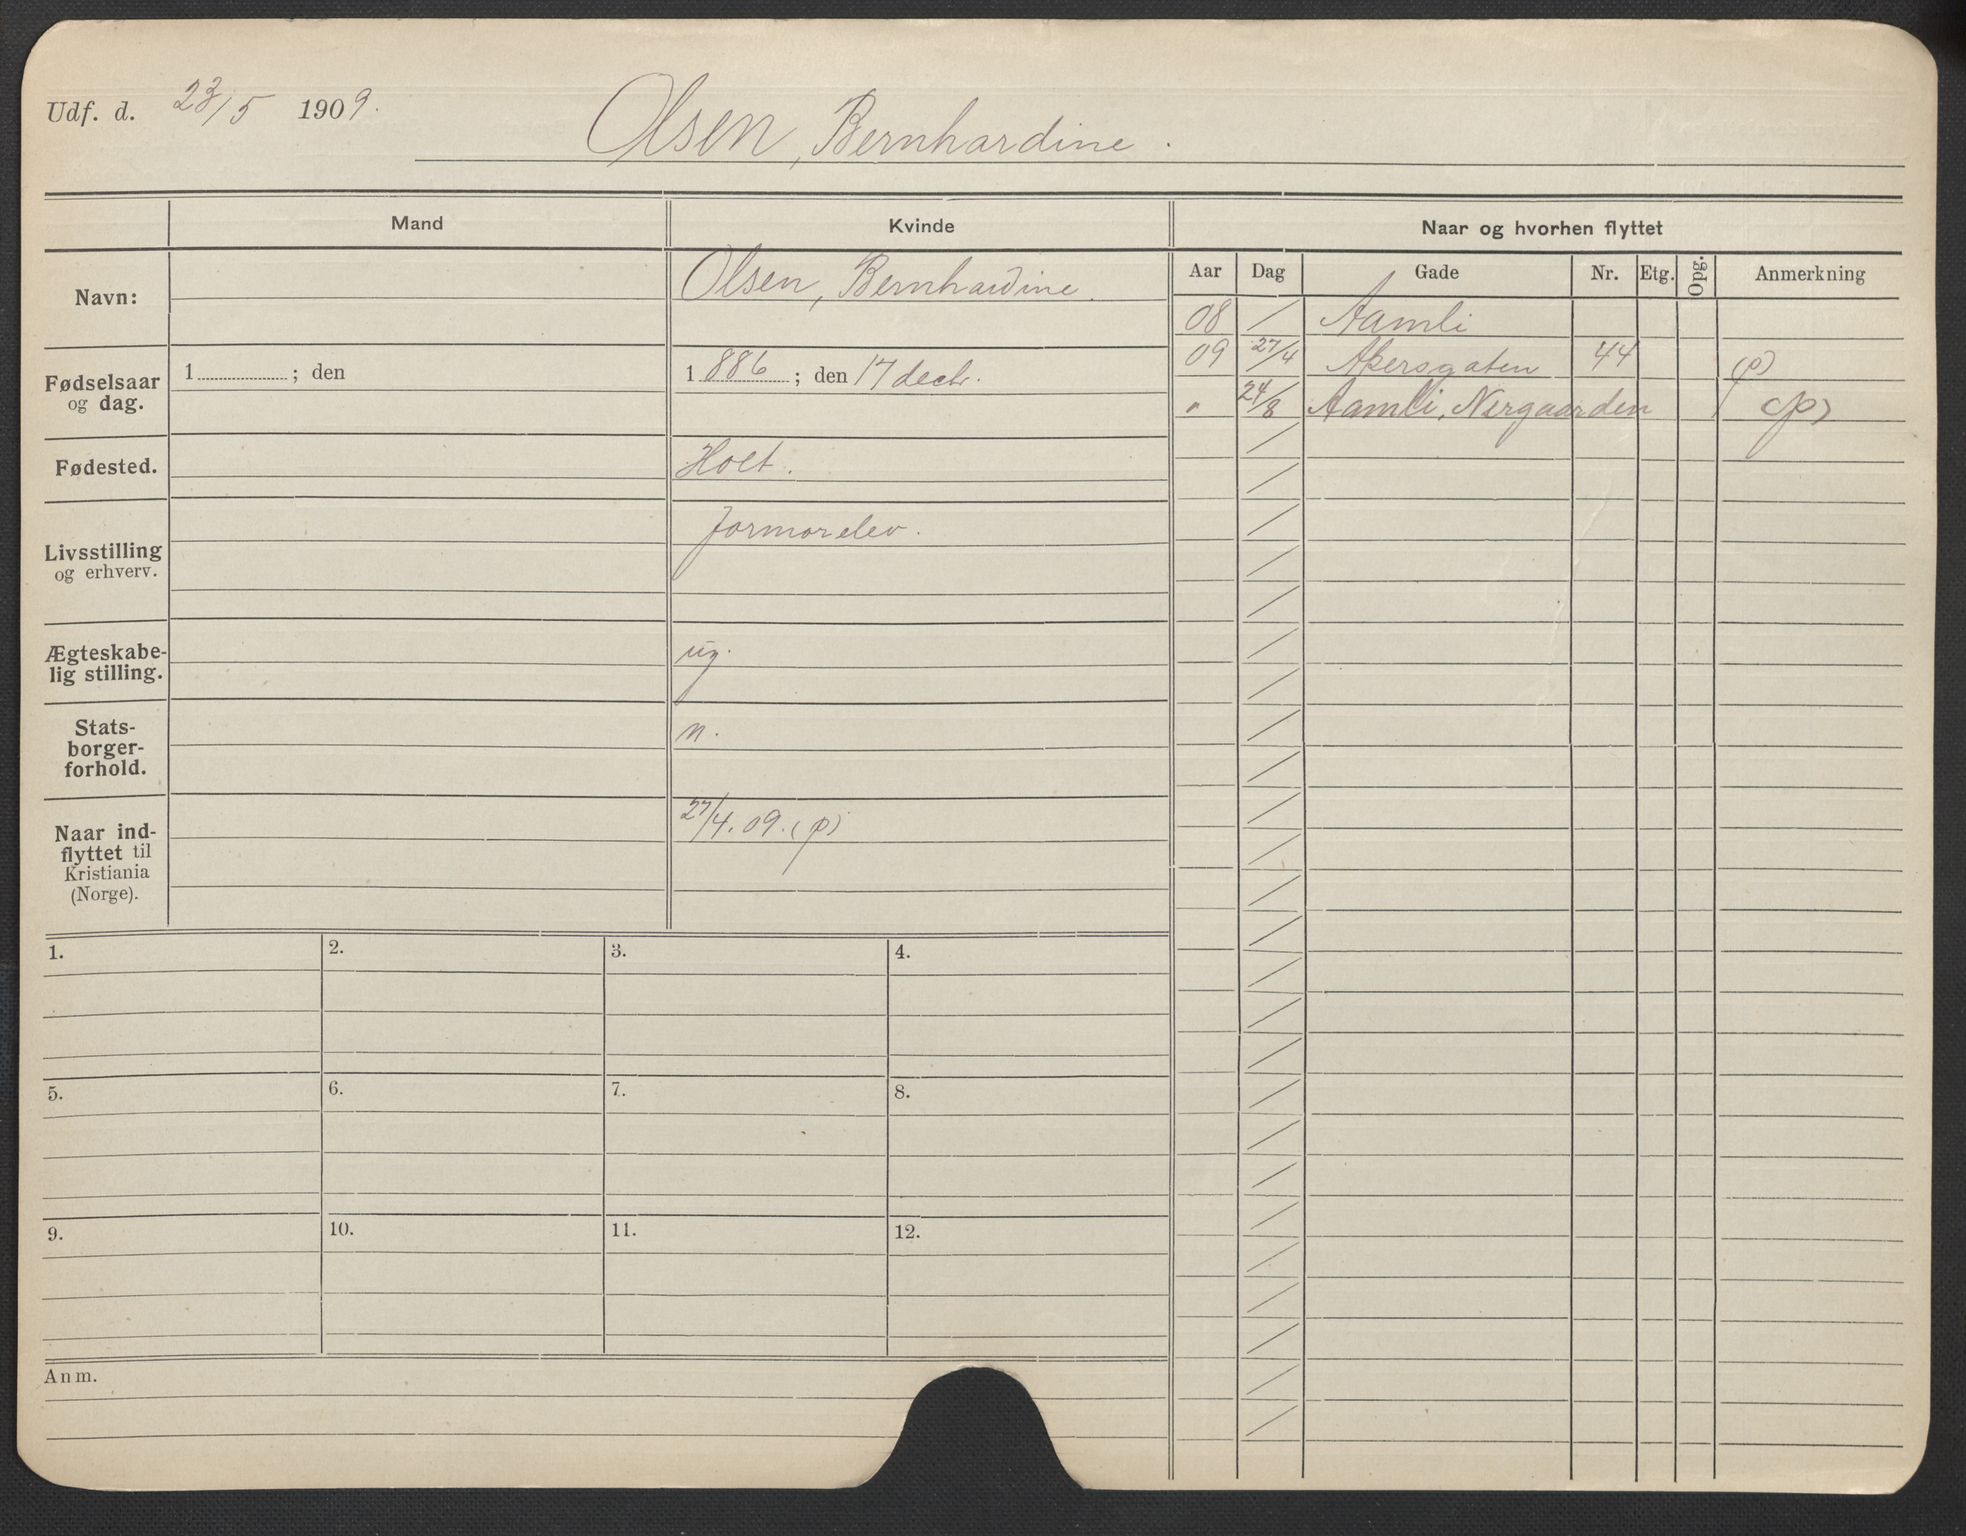 Udf. d. 23/5 1909.
Olsen, Bernhardine.
Mand
Kvinde
Naar og hvorhen flyttet
Aar Dag Gade Nr. Etg. Opg. Anmerkning
Navn:
Olsen, Bernhardine.
08 / Aamli
09 27/4 Akersgaten 44 (p)
" 24/8 Aamli, Nergaarden (p)
Fødselsaar
og dag.
1 ; den
1 886 ; den 17 decbr.
Fødested.
Holt.
Livsstilling
og erhverv.
Jormorelev.
Ægteskabe-
lig stilling.
ug.
Stats-
borger-
forhold.
n.
Naar ind-
flyttet til
Kristiania
(Norge).
27/4. 09. (p)
1. 2. 3. 4.
5. 6. 7. 8.
9. 10. 11. 12.
Anm.